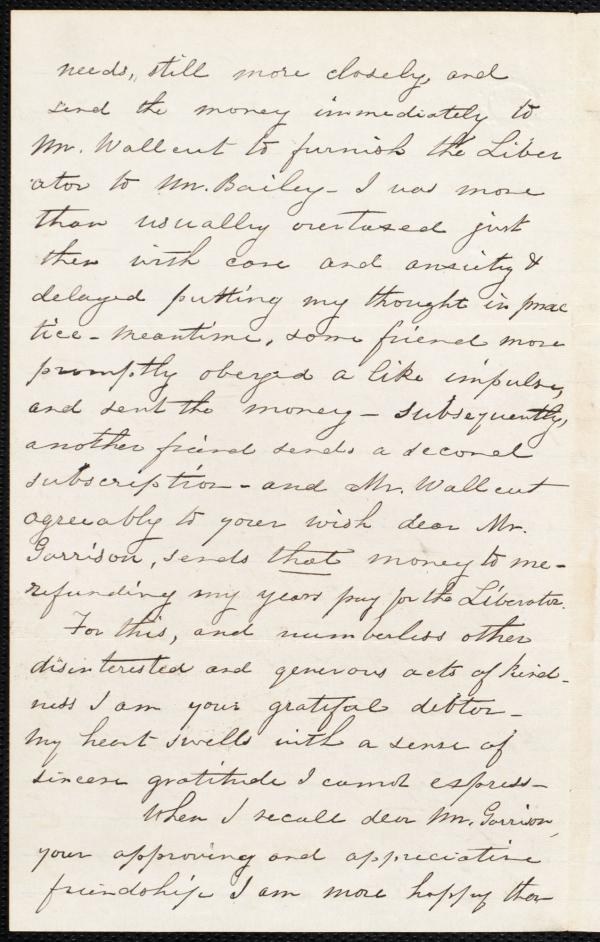 needs, still more closely, and
send the money immediately to
Mr. Wallcut to furnish the Liber
ator to Mr. Bailey - I was more
than usually overtaxed just
then with care and anxiety &
delayed putting my thought in prac
tice - meantime, some friend more
promptly obeyed a like impulse,
and sent the money - subsequently,
another friend sends a second
subscription - and Mr. Wallcut
agreeably to your wish dear Mr.
Garrison, sends that money to me -
refunding my years pay for the Liberator.
For this, and numberless other
disinterested and generous acts of kind-
ness I am your grateful debtor -
My heart swells with a sense of
sincere gratitude I cannot express -
When I recall dear Mr. Garrison,
your approving and appreciative
friendship I am more happy than